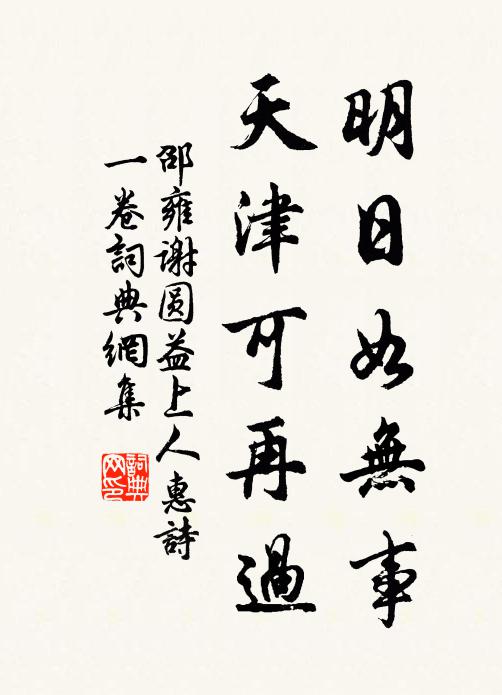 明日如無事
天津可再過
邵雍謝圓益上人惠詩
一卷詞典網集
詞典
网印